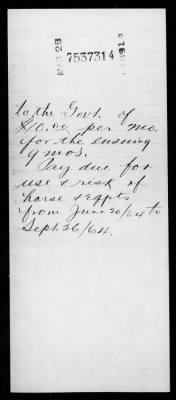 MAR 28
7537314
1916
to the Govt. of
$10.00 per mo.
for the ensuing
9 mos.
Pay due for
use & risk of
horse & eqpts
from June 20/64 to
Sept. 26/64.